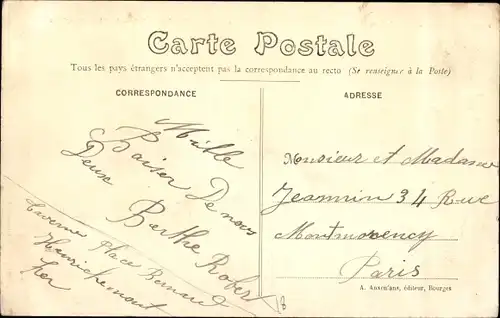 Carte Postale
Tous les pays étrangers n'acceptent pas la correspondance au recto (Se renseigner à la Poste)
CORRESPONDANCE
Mille
Baiser De nous
Deux Berthe Robert
Place Bernard
Henrichemont
ADRESSE
Monsieur et Madame
Jeannin 34 Rue
Montmorency
Paris
A. Auxenfans, éditeur, Bourges